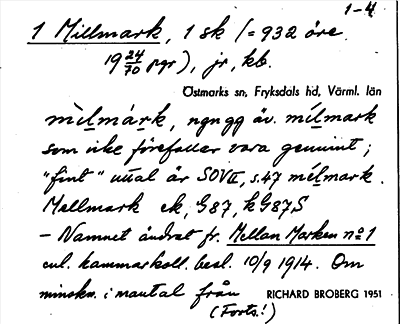 1-4
1 Millmark, 1 sk (= 932 öre
19 24/70 pgr), jr, kb.
Östmarks sn, Fryksdals hd, Värml. län
mìlmárk, ngn gg äv. mílmark
som icke förefaller vara genuint;
"fint" uttal är SOV II, s.47 mélmark.
Mellmark ek, G87, kG87S
– Namnet ändrat fr. Mellan Marken no 1
enl. kammarkoll. besl. 10/9 1914. Om
minskn. i mantal från RICHARD BROBERG 1951
(Forts.!)